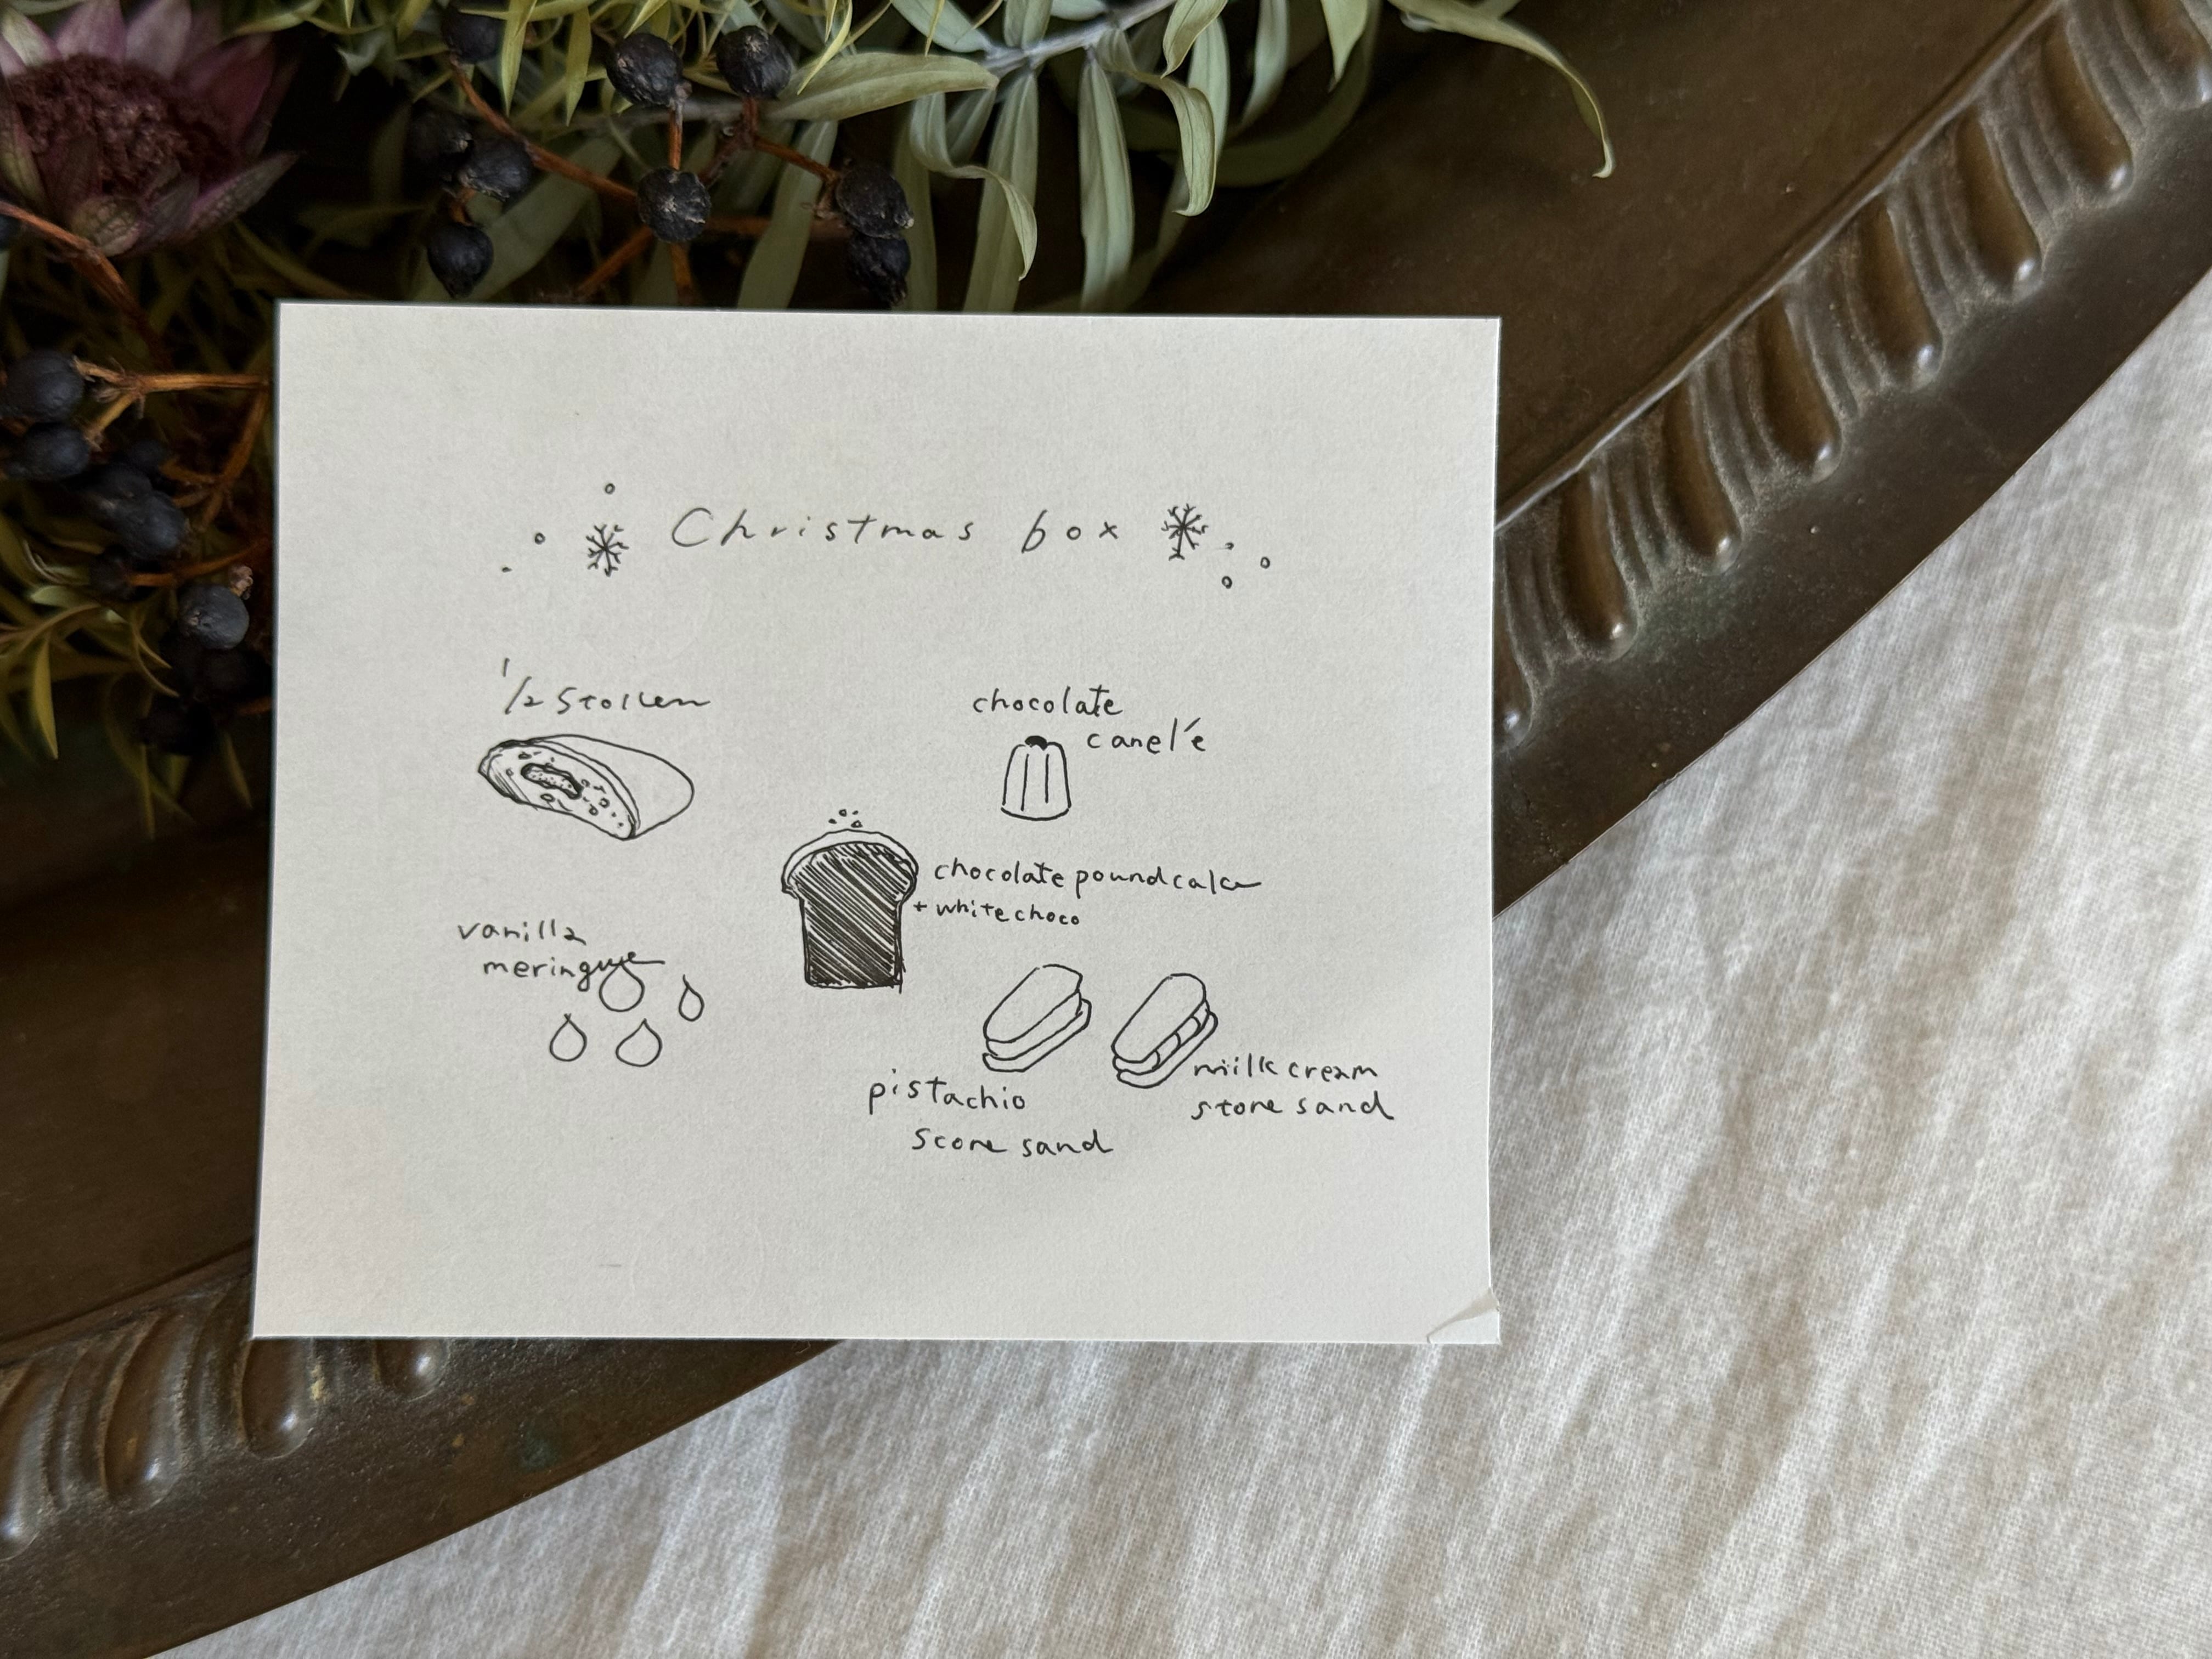 Christmas box
1/2 Stollen
chocolate
canel'e
chocolate poundcake
+ white choco
vanilla
meringue
pistachio
scone sand
milk cream
stone sand